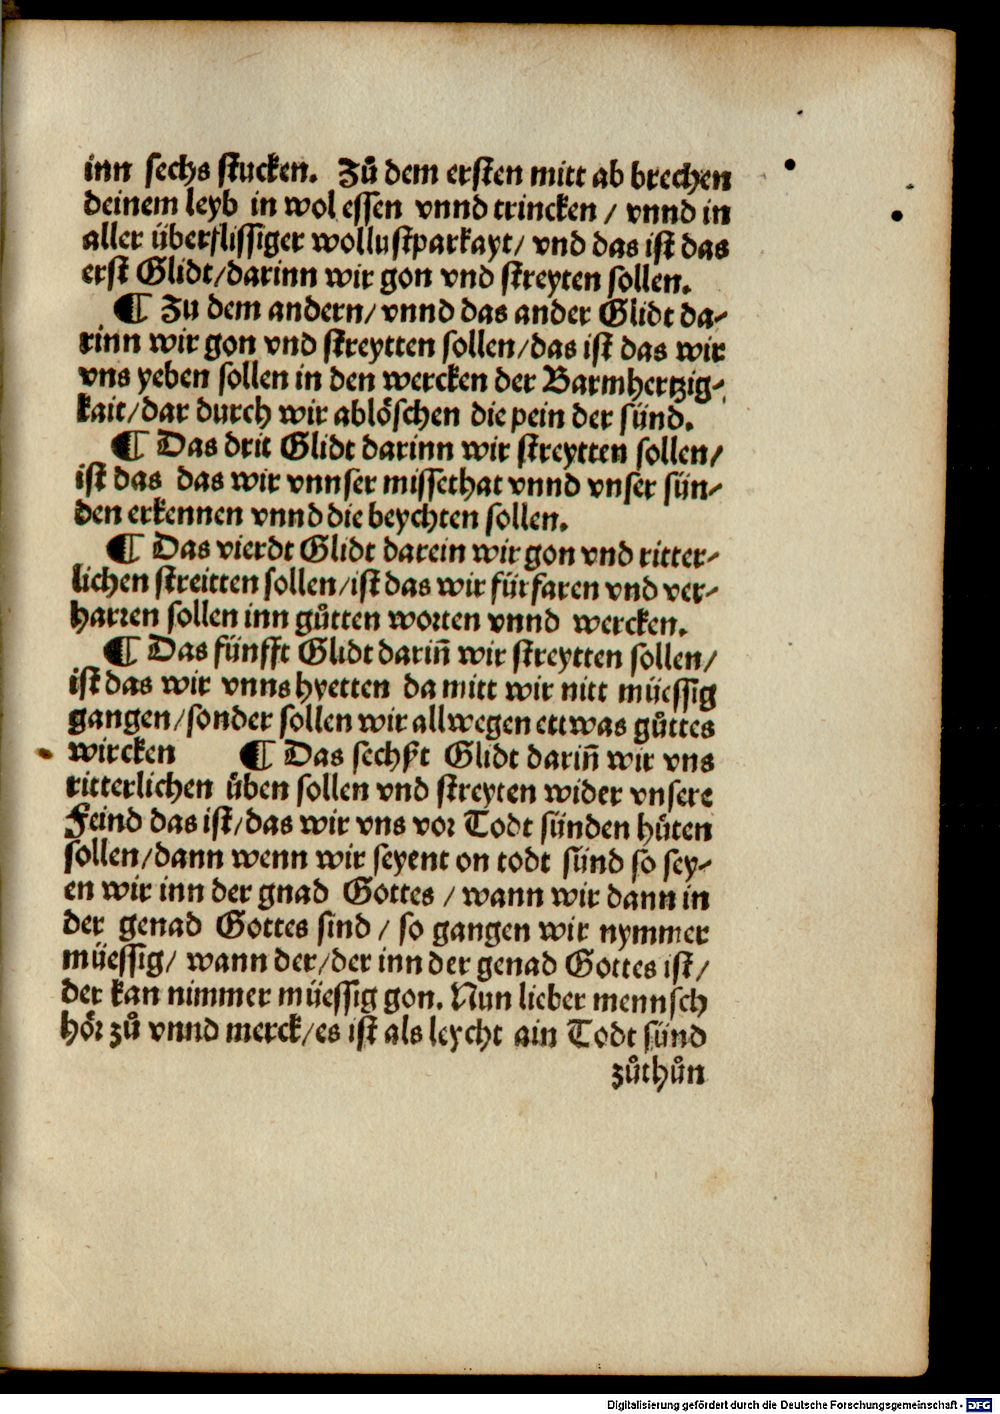 inn sechs stucken. Zuͦ dem ersten mitt ab brechen
deinem leyb in wol essen vnnd trincken / vnnd in
aller überflissiger wollustparkayt/ vnd das ist das
erst Glidt/darinn wir gon vnd streyten sollen.
¶ Zu dem andern/ vnnd das ander Glidt da⸗
rinn wir gon vnd streytten sollen/das ist das wir
vns yeben sollen in den wercken der Barmhertzig⸗
kait/dar durch wir ablöschen die pein der sünd.
¶ Das drit Glidt darinn wir streytten sollen/
ist das das wir vnnser missethat vnnd vnser sün⸗
den erkennen vnnd die beychten sollen.
¶ Das vierdt Glidt darein wir gon vnd ritter⸗
lichen streitten sollen/ist das wir für faren vnd ver⸗
harren sollen inn guͦtten worten vnnd wercken.
¶ Das fünfft Glidt dariñ wir streytten sollen/
ist das wir vnns hyetten da mitt wir nitt müessig
gangen/sonder sollen wir allwegen ettwas guͦttes
wircken ¶ Das sechst Glidt dariñ wir vns
ritterlichen üben sollen vnd streyten wider vnsere
Feind das ist/das wir vns vor Todt sünden hüten
sollen/dann wenn wir seyent on todt sünd so sey⸗
en wir inn der gnad Gottes / wann wir dann in
der genad Gottes sind / so gangen wir nymmer
müessig/ wann der/der inn der genad Gottes ist/
der kan nimmer müessig gon. Nun lieber mennsch
hör zuͦ vnnd merck/es ist als leycht ain Todt sünd
zuͦthuͦn
Digitalisierung gefördert durch die Deutsche Forschungsgemeinschaft - DFG